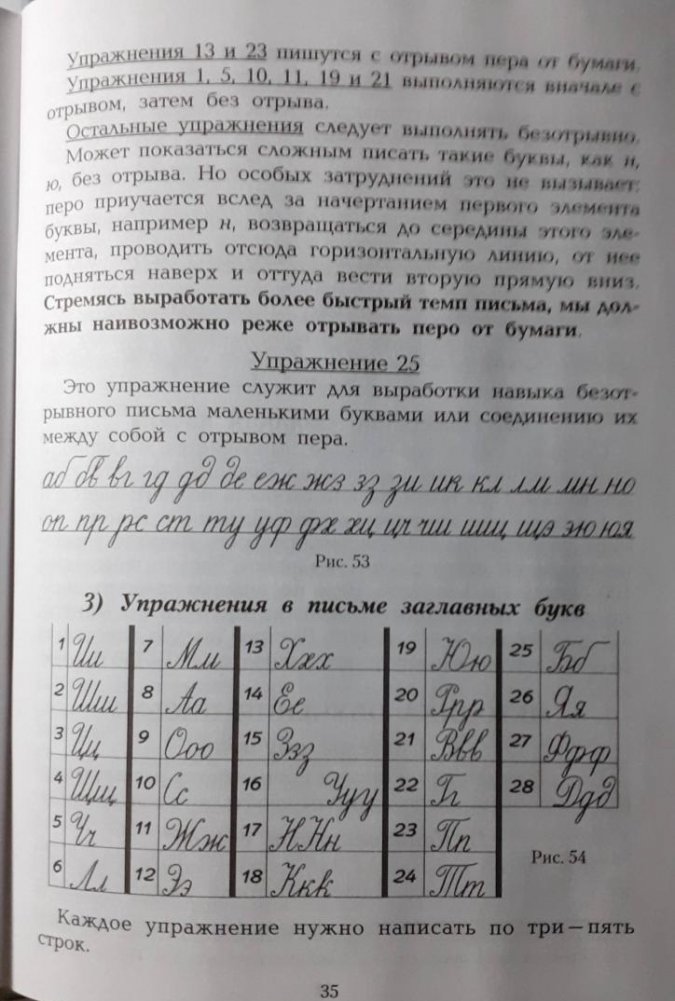 Упражнения 13 и 23 пишутся с отрывом пера от бумаги.
Упражнения 1, 5, 10, 11, 19 и 21 выполняются вначале с
отрывом, затем без отрыва.
Остальные упражнения следует выполнять безотрывно.
Может показаться сложным писать такие буквы, как н,
ю, без отрыва. Но особых затруднений это не вызывает:
перо приучается вслед за начертанием первого элемента
буквы, например н, возвращаться до середины этого эле-
мента, проводить отсюда горизонтальную линию, от нее
подняться наверх и оттуда вести вторую прямую вниз.
Стремясь выработать более быстрый темп письма, мы дол-
жны наивозможно реже отрывать перо от бумаги.
Упражнение 25
Это упражнение служит для выработки навыка безот-
рывного письма маленькими буквами или соединению их
между собой с отрывом пера.
аб бв вг гд дд де еж жз зз зи ик кл лм мн но
оп пр рс ст ту уф фх хц цч чш шщ щэ эю юя
Рис. 53
3) Упражнения в письме заглавных букв
1 Ии 7 Мм 13 Ххх 19 Юю 25 Бб
2 Шш 8 Аа 14 Ее 20 Ррр 26 Яя
3 Цц 9 Ооо 15 Ззз 21 Ввв 27 Ффф
4 Щщ 10 Сс 16 Ууу 22 Гг 28 Ддд
5 Чч 11 Жж 17 ННн 23 Пп
6 Лл 12 Ээ 18 Ккк 24 Тт
Рис. 54
Каждое упражнение нужно написать по три—пять
строк.
35